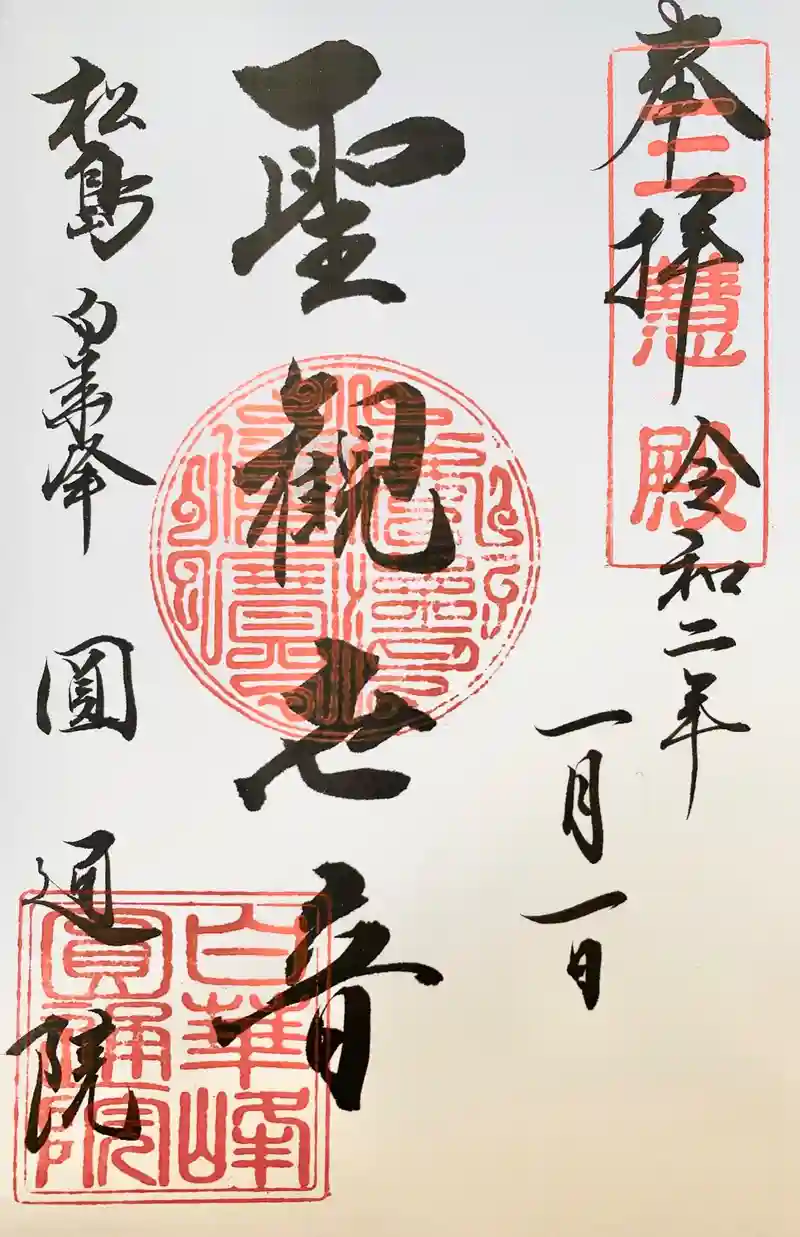 奉拝
令和二年
一月一日
三慧殿
聖観世音
松島 白華峰 圓通院
白華峰
圓通院